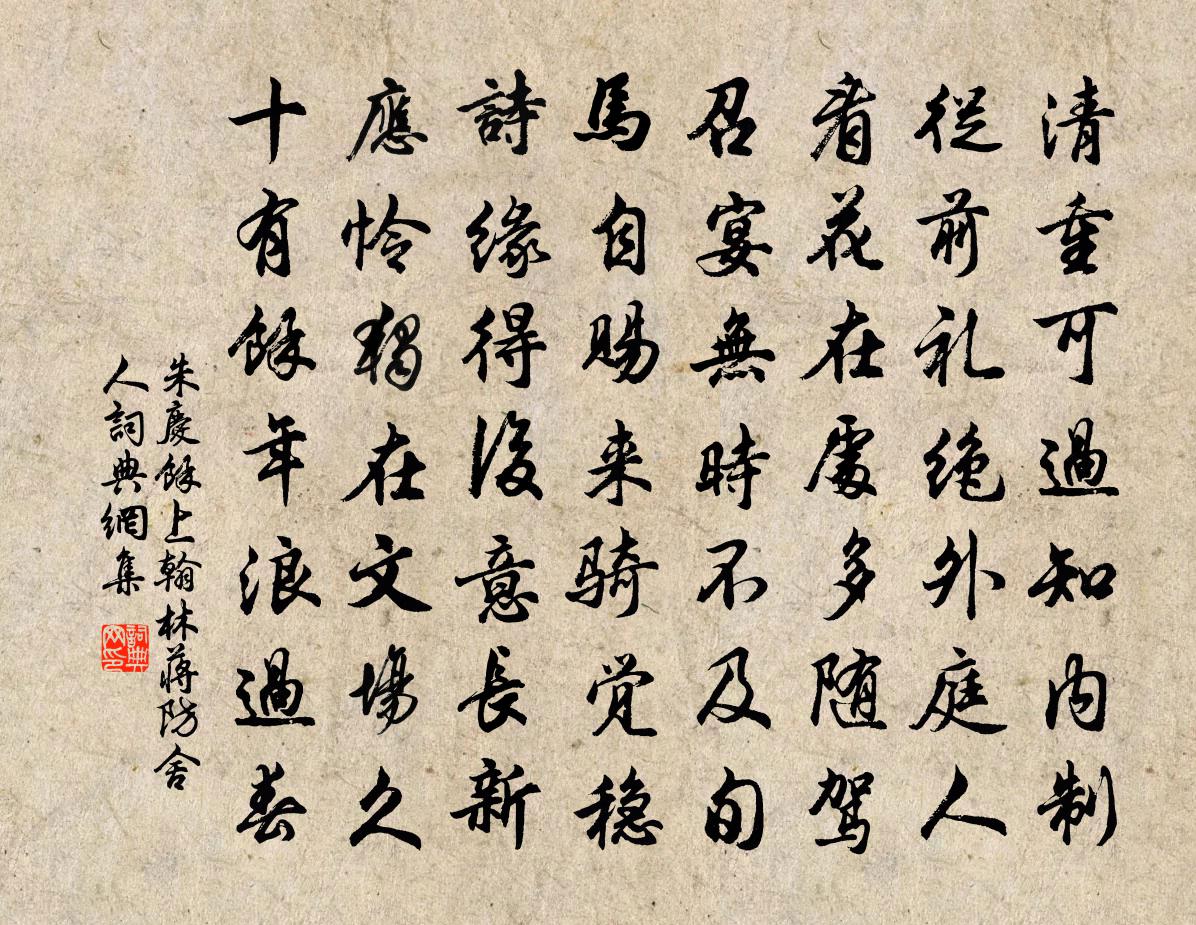 清重可過知内制
從前礼絶外庭人
看花在處多随駕
召宴無時不及旬
馬自賜来騎覚穏
詩緣得後意長新
應怜獨在文場久
十有餘年浪過春
朱慶餘上翰林蔣防舍
人詞典網集
詞典
网印